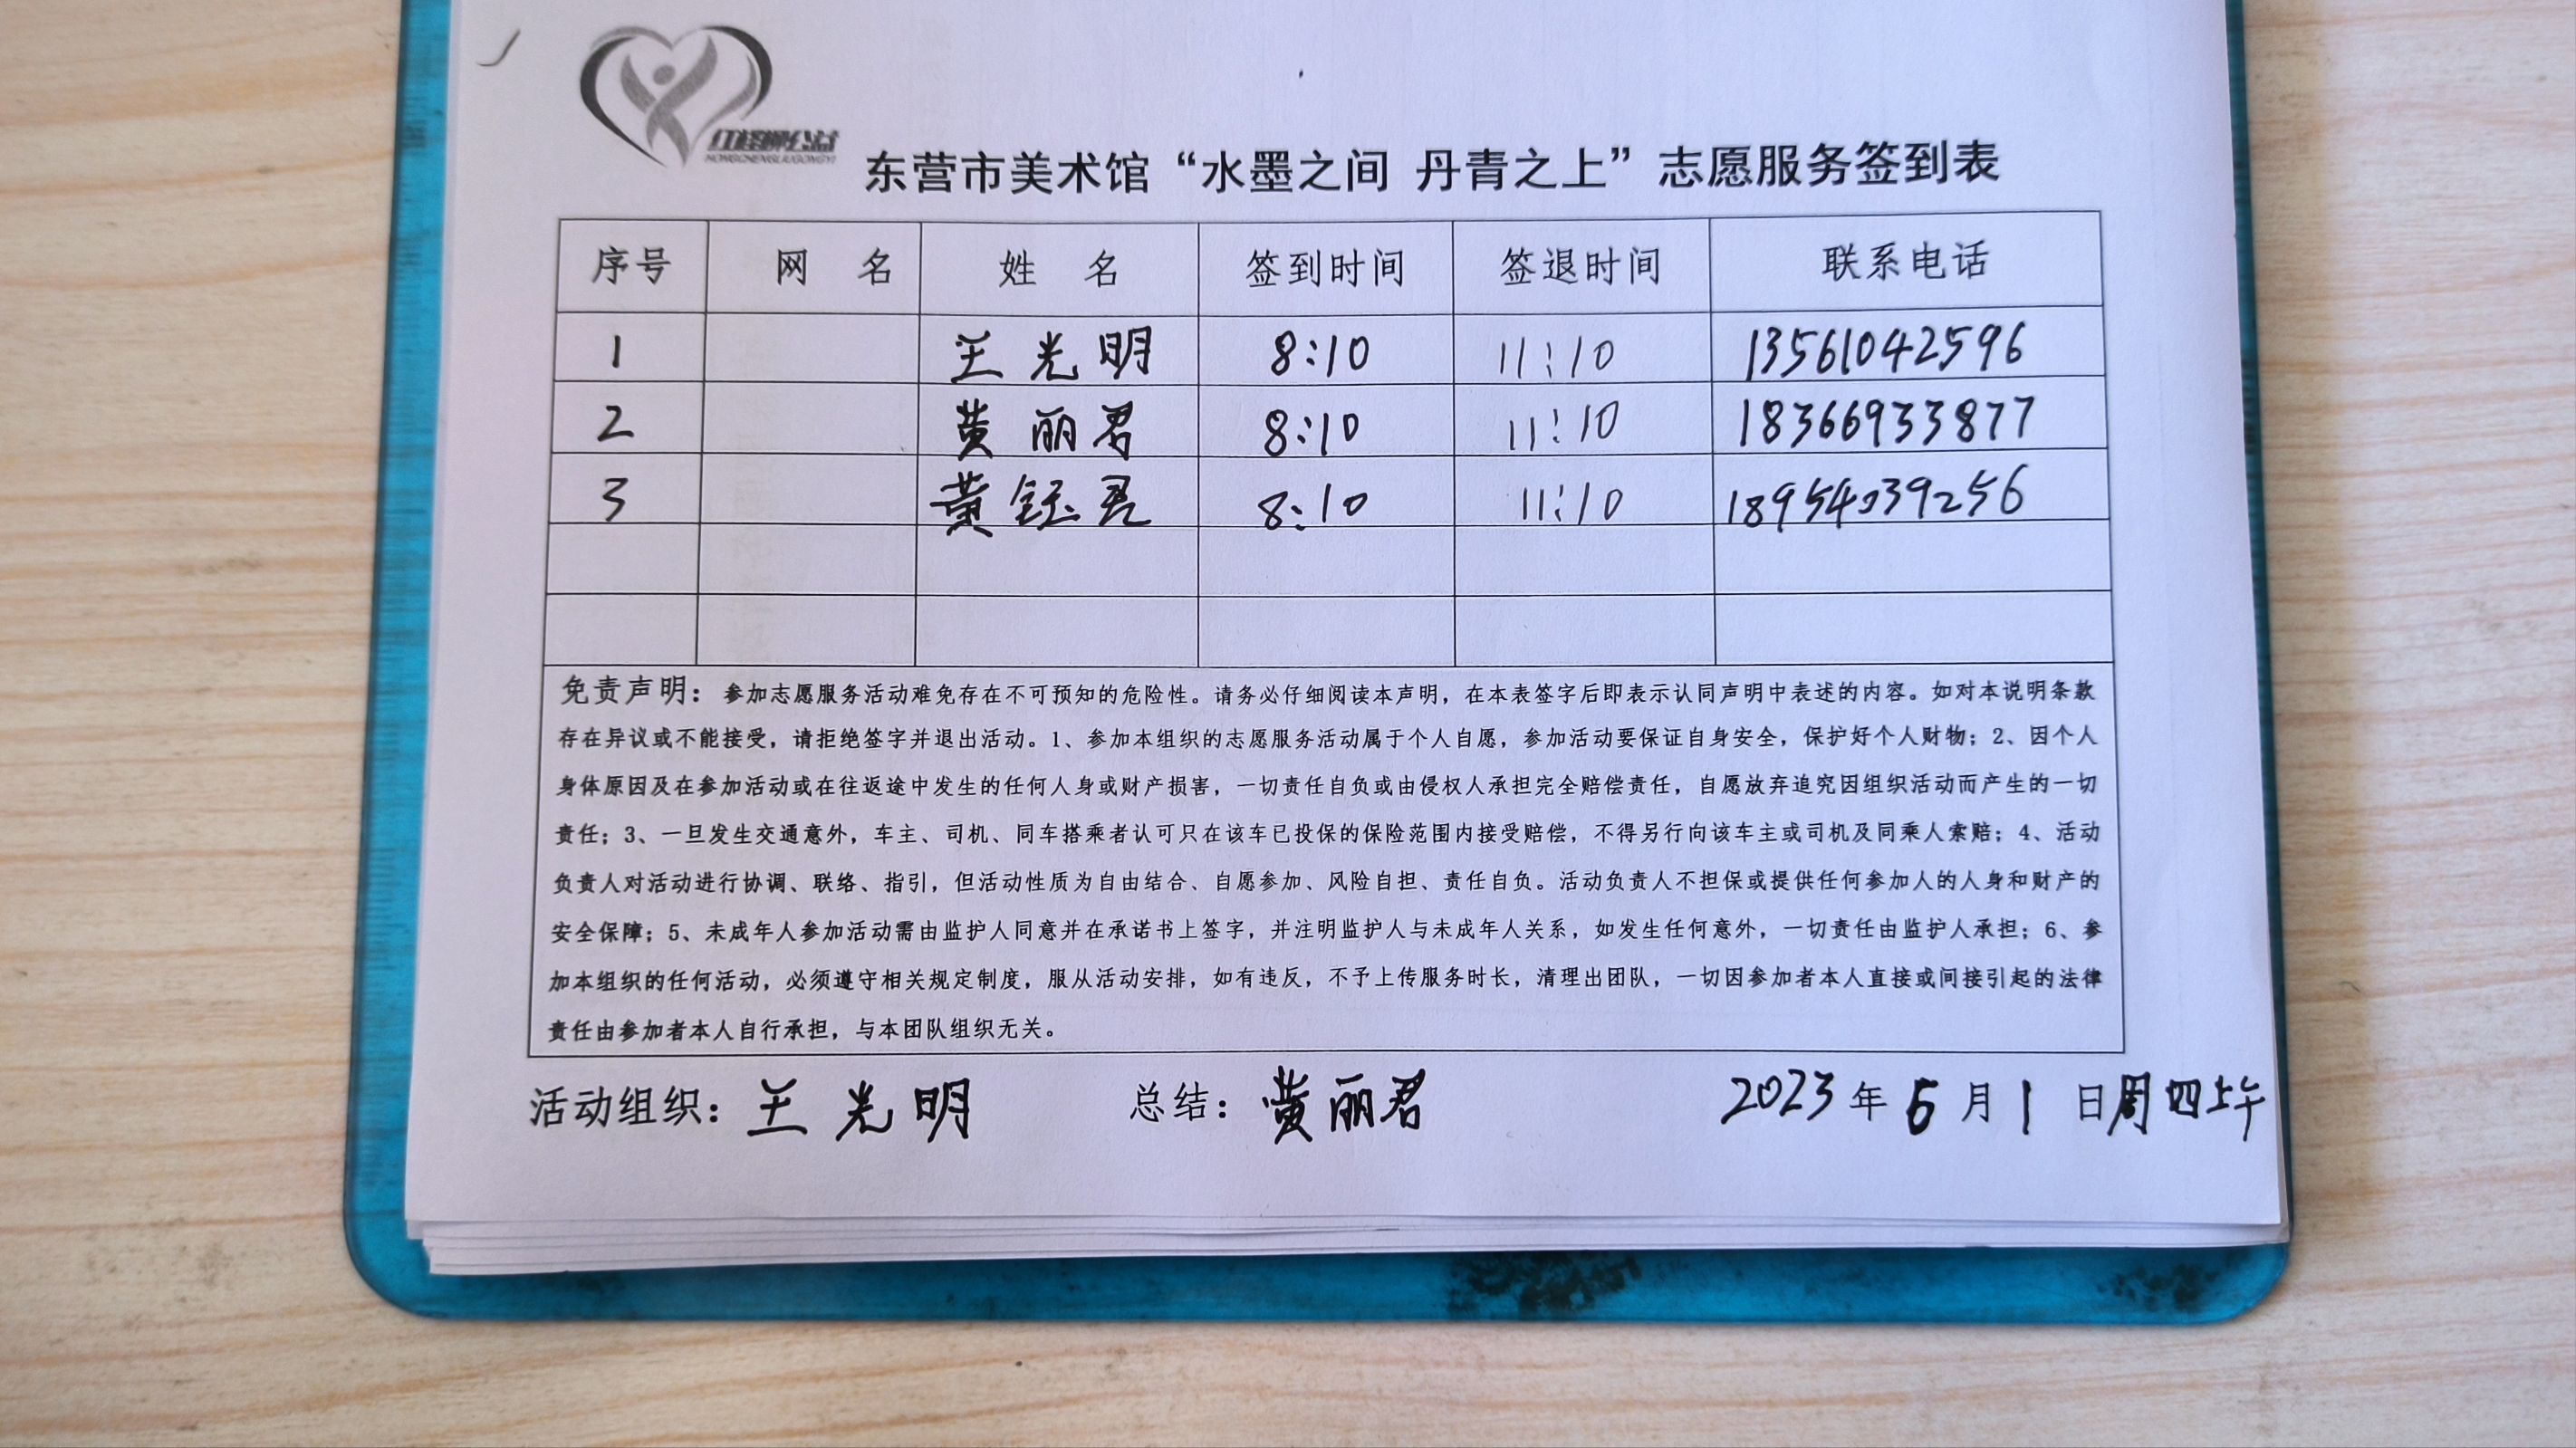 红柽柳公益
HONGCHENGLIUGONGYI
东营市美术馆“水墨之间 丹青之上”志愿服务签到表
序号 网 名 姓 名 签到时间 签退时间 联系电话
1 王光明 8:10 11:10 13561042596
2 黄丽君 8:10 11:10 18366933877
3 黄钰君 8:10 11:10 18954039256
免责声明：参加志愿服务活动难免存在不可预知的危险性。请务必仔细阅读本声明，在本表签字后即表示认同声明中表述的内容。如对本说明条款
存在异议或不能接受，请拒绝签字并退出活动。1、参加本组织的志愿服务活动属于个人自愿，参加活动要保证自身安全，保护好个人财物；2、因个人
身体原因及在参加活动或在往返途中发生的任何人身或财产损害，一切责任自负或由侵权人承担完全赔偿责任，自愿放弃追究因组织活动而产生的一切
责任；3、一旦发生交通意外，车主、司机、同车搭乘者认可只在该车已投保的保险范围内接受赔偿，不得另行向该车主或司机及同乘人索赔；4、活动
负责人对活动进行协调、联络、指引，但活动性质为自由结合、自愿参加、风险自担、责任自负。活动负责人不担保或提供任何参加人的人身和财产的
安全保障；5、未成年人参加活动需由监护人同意并在承诺书上签字，并注明监护人与未成年人关系，如发生任何意外，一切责任由监护人承担；6、参
加本组织的任何活动，必须遵守相关规定制度，服从活动安排，如有违反，不予上传服务时长，清理出团队，一切因参加者本人直接或间接引起的法律
责任由参加者本人自行承担，与本团队组织无关。
活动组织：王光明 总结：黄丽君 2023年6月1日周四上午